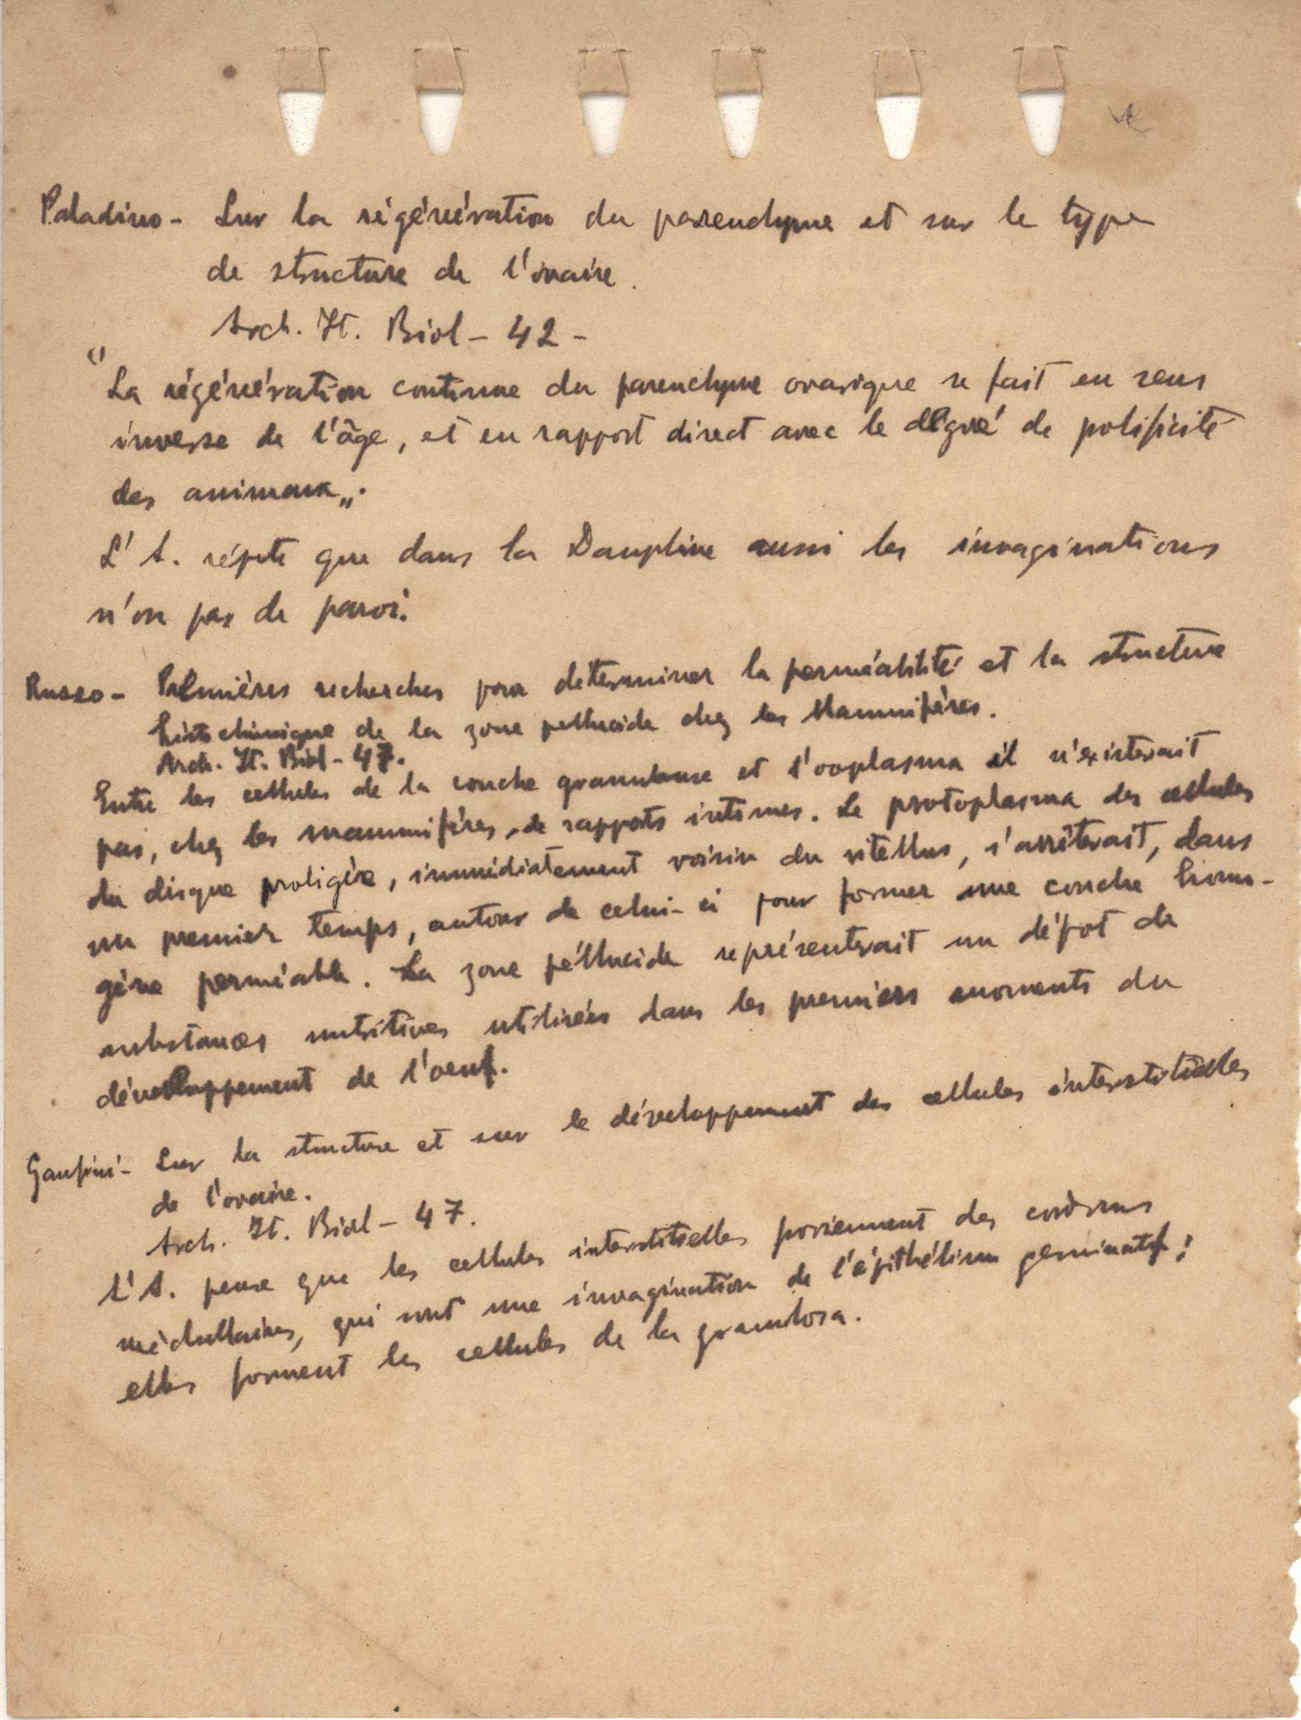 Paladino - Sur la régénération du parenchyme et sur le type
de structure de l'ovaire.
Arch. It. Biol - 42 -
"La régénération continue du parenchyme ovarique se fait en sens
inverse de l'âge, et en rapport direct avec le degré de polificité
des animaux„.
L'A. répete que dans la Dauphine aussi les invaginations
n'on pas de paroi.
Russo - Prémières recherches pour déterminer la perméabilité et la structure
histochimique de la zone pellucide chez les Mammifères.
Arch. It. Biol - 47.
Entre les cellules de la couche granuleuse et l'ooplasma il n'existerait
pas, chez les mammifères, de rapports intimes. Le protoplasma des cellules
du disque proligère, immédiatement voisin du vitellus, s'arrêterait, dans
un premier temps, autour de celui-ci pour former une couche homo-
gène perméable. La zone péllucide représenterait un dépot de
substances nutritives utilisées dans les premiers moments du
développement de l'oeuf.
Ganfini - Sur la structure et sur le développement des cellules interstitielles
de l'ovaire.
Arch. It. Biol - 47.
L'A. pense que les cellules interstitielles proviennent des cordons
médullaires, qui sont une invagination de l'épithélium germinatif;
elles forment les cellules de la granulosa.